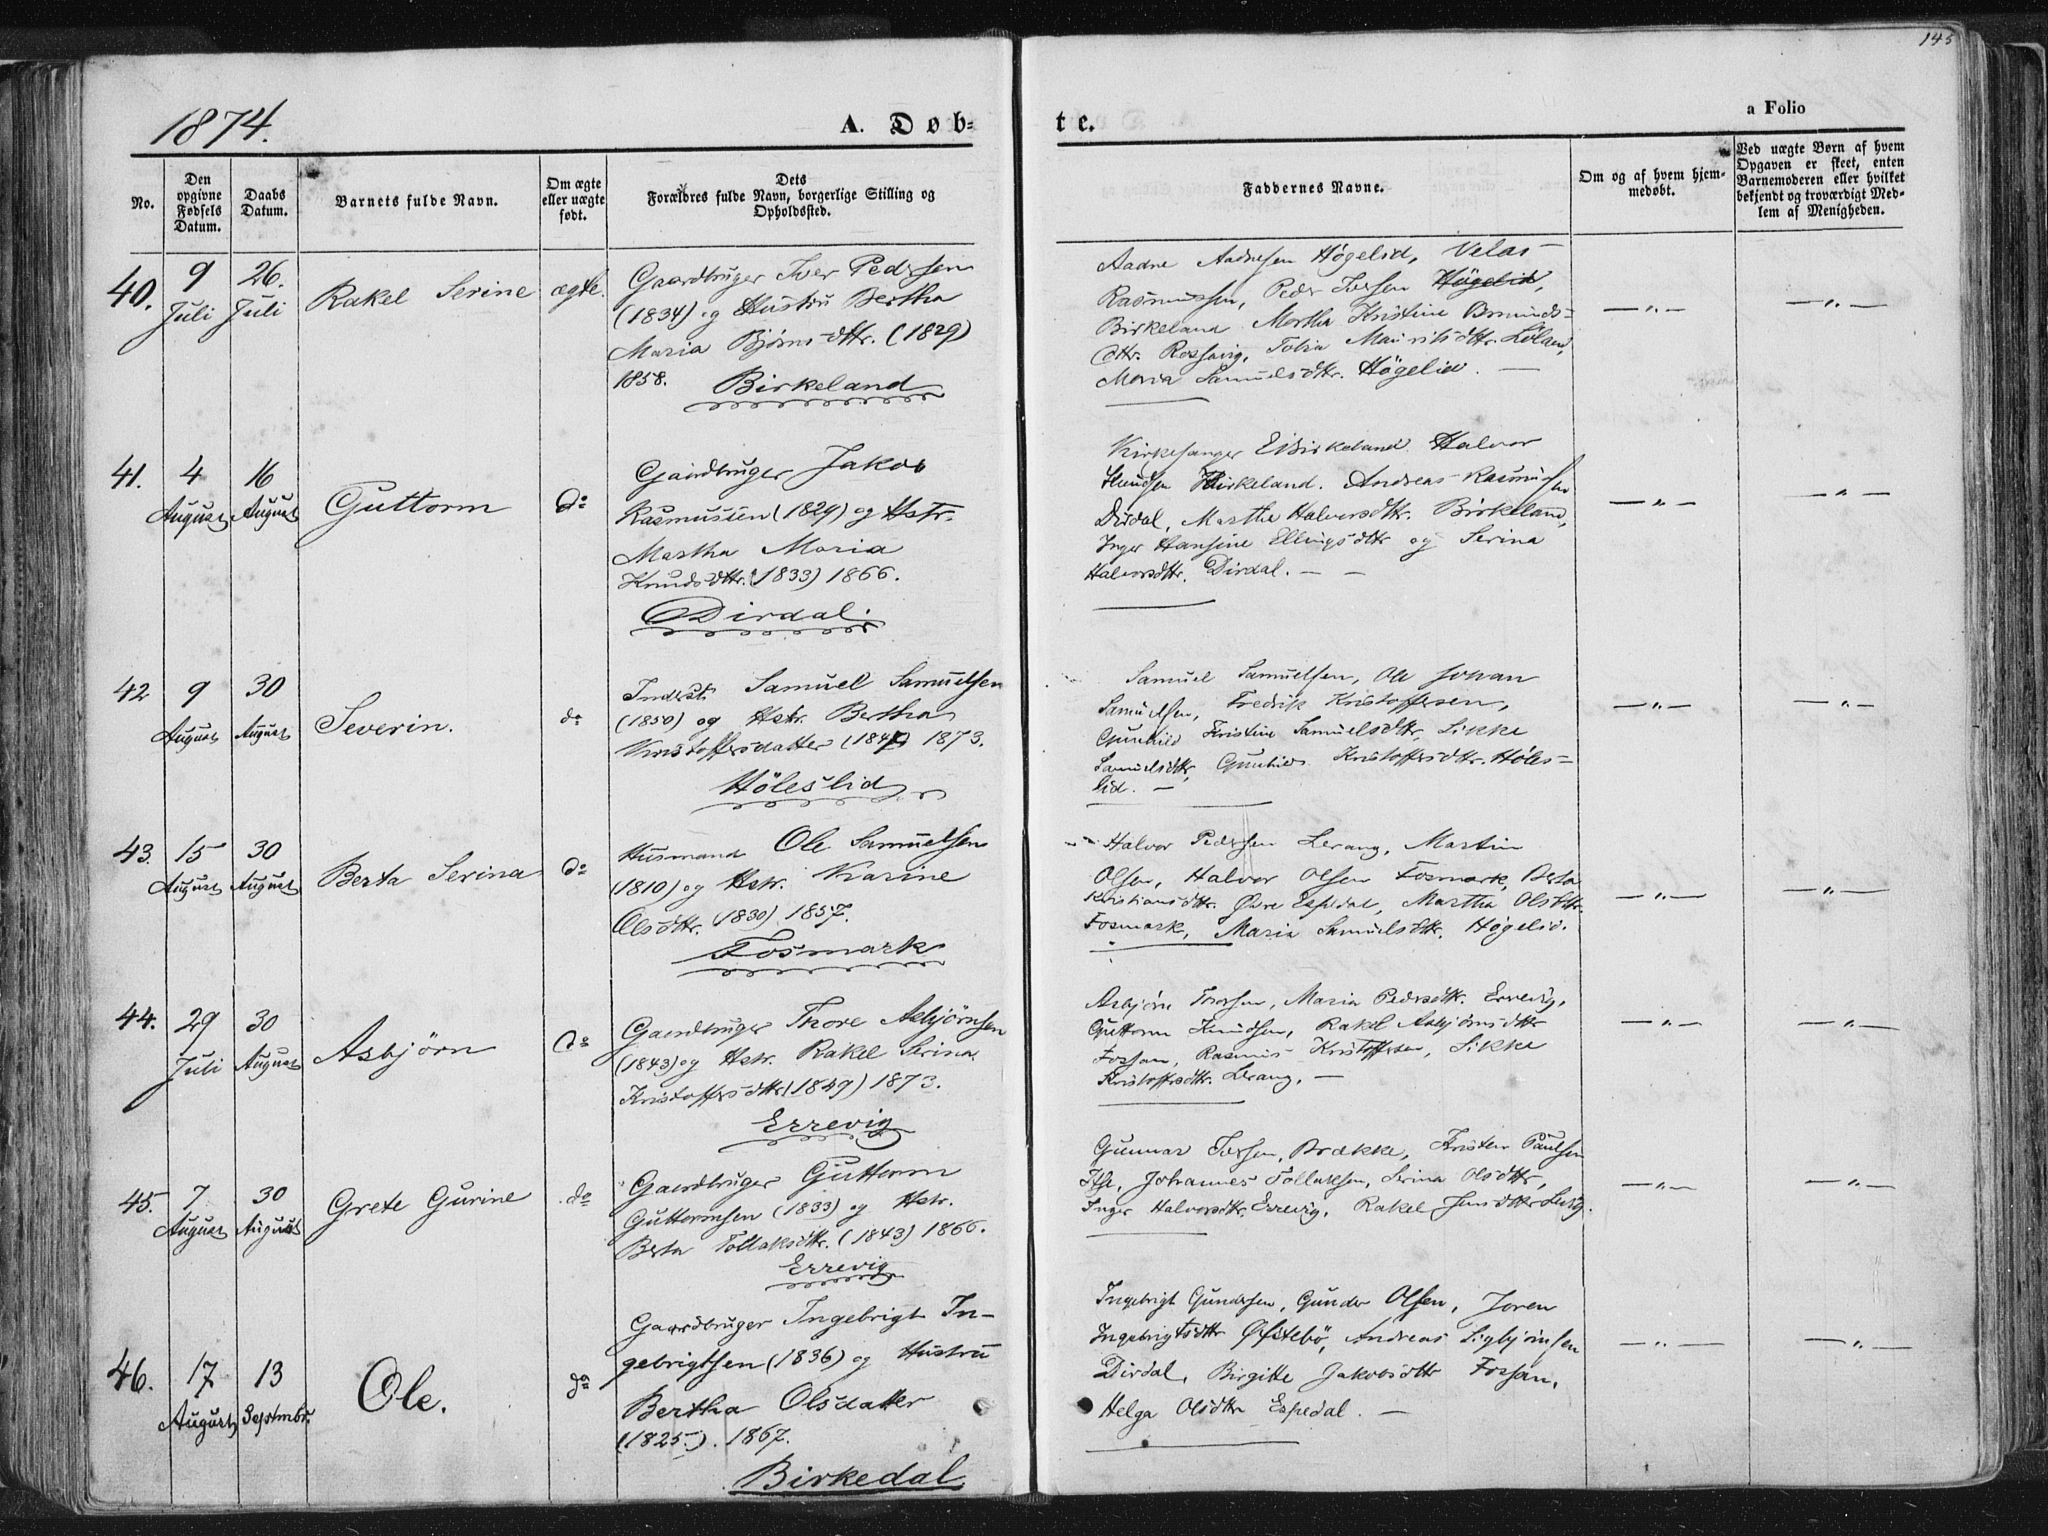 145
1874.
A. Døb-
te.
a Folio
No.
Den
opgivne
Fødsels
Datum.
Daabs
Datum.
Barnets fulde Navn.
Om ægte
eller uægte
født.
Dets
Forældres fulde Navn, borgerlige Stilling og
Opholdssted.
Faddernes Navne.
Om og af hvem hjem-
medøbt.
Ved uægte Børn af hvem
Opgaven er skeet, enten
Barnemoderen eller hvilket
bekjendt og troværdigt Med-
lem af Menigheden.
40.
9
Juli
26.
Juli
Rakel Serine
ægte.
Gaardbruger Iver Pedersen
(1834) og Hustru Bertha
Maria Bjørnsdttr. (1829)
1858.
Birkeland
Aadne Aadnesen Høgelid, Velas
Rasmussen, Peder Iversen Høgelid,
Birkeland. Martha Kristine
dttr. Rossavig, Tobia Mauritsdttr.
Maria Samuelsdttr. Høgelid. —
— „ —
— „ —
41.
4
August
16
August
Guttorm
do
Gaardbruger Jakob
Rasmussen (1829) og Hstr.
Martha Maria
Knudsdttr. (1833) 1866.
Dirdal.
Kirkesanger E Birkeland. Halvor
Knudsen Birkeland. Andreas Rasmussen
Dirdal, Martha Halvorsdttr. Birkeland,
Inger Hansine Ellingsdttr og Serina
Halvorsdttr. Dirdal. — —
— „ —
— „ —
42
9
August
30
August
Severin.
do
Inderst Samuel Samuelsen
(1850) og Hstr. Bertha
Kristoffersdatter 1873.
Høleslid
Samuel Samuelsen, Ole Johan
Samuelsen, Fredrik Kristoffersen,
Gunhild Kristine Samuelsdttr. Sikke
Samuelsdttr, Gunhild Kristoffersdttr. Høles-
lid. —
— „ —
— „ —
43.
15
August
30
August
Berta Serina
do
Husmand Ole Samuelsen
(1810) og Hstr. Karine
Olsdttr. (1830) 1857.
Fosmark
Halvor Pedersen Lerang, Martin
Olsen, Halvor Olsen Fosmark, Berta
Kristiansdttr. Øvre Espedal, Martha Olsdttr.
Fosmark, Maria Samuelsdttr. Høgelid.
— „ —
— „ —
44.
29
Juli
30
August
Asbjörn
do
Gaardbruger Thore Asbjörnsen
(1843) og Hstr. Rakel Serina
Kristoffersdttr (1849) 1873.
Errevig
Asbjörn Thorsen, Maria Pedersdttr. Errevig,
Guttorm Knudsen, Rakel Asbjörnsdttr
Fossan, Rasmus Kristoffersen, Sikke
Kristoffersdttr. Lerang. —
— „ —
— „ —
45.
7
August
30
August
Grete Gurine
do
Gaardbruger Guttorm
Guttormsen (1833) og Hstr.
Berta Tollaksdttr. (1843) 1866.
Errevig
Gunnar Iversen, Brække, Kristen Paulsen
Johannes Tollaksen, Serina Olsdttr,
Inger Halvorsdttr. Errevig, Rakel Jensdttr
— „ —
— „ —
46.
17
August
13
Septmbr.
Ole.
do
Gaardbruger Ingebrigt In-
gebrigtsen (1836) og Hustru
Bertha Olsdatter
(1825.). 1867.
Birkedal
Ingebrigt Gundersen, Gunder Olsen, Joren
Ingebrigtsdttr Østebö, Andreas Sigbjörnsen
Dirdal, Birgitte Jakobsdttr Fossan,
Helga Olsdttr Espedal. —
— „ —
— „ —